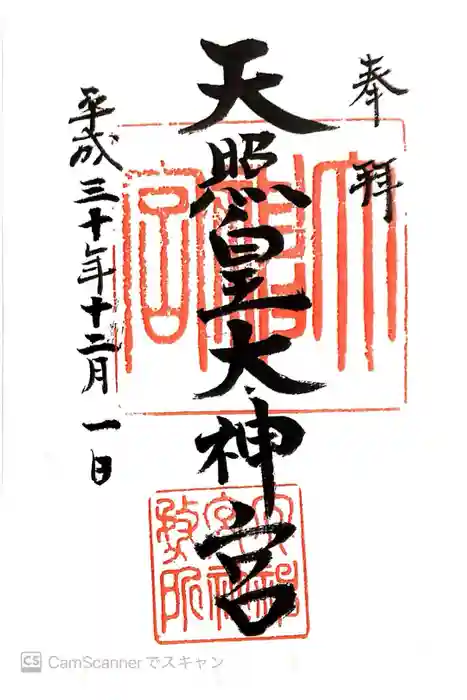 奉拜
天照皇大神宮
平成三十年十二月一日
CS CamScannerでスキャン